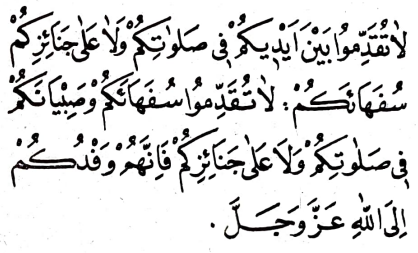 لَا تُقَدِّمُوا بَيْنَ اَيْدٖيكُمْ فٖى صَلٰوتِكُمْ وَلَا عَلٰى جَنَائِزِكُمْ
سُفَهَائَكُمْ : لَا تُقَدِّمُوا سُفَهَائَكُمْ وَصِبْيَانَكُمْ
فٖى صَلٰوتِكُمْ وَلَا عَلٰى جَنَائِزِكُمْ فَاِنَّهُمْ وَفْدُكُمْ
اِلَى اللّٰهِ عَزَّ وَجَلَّ .